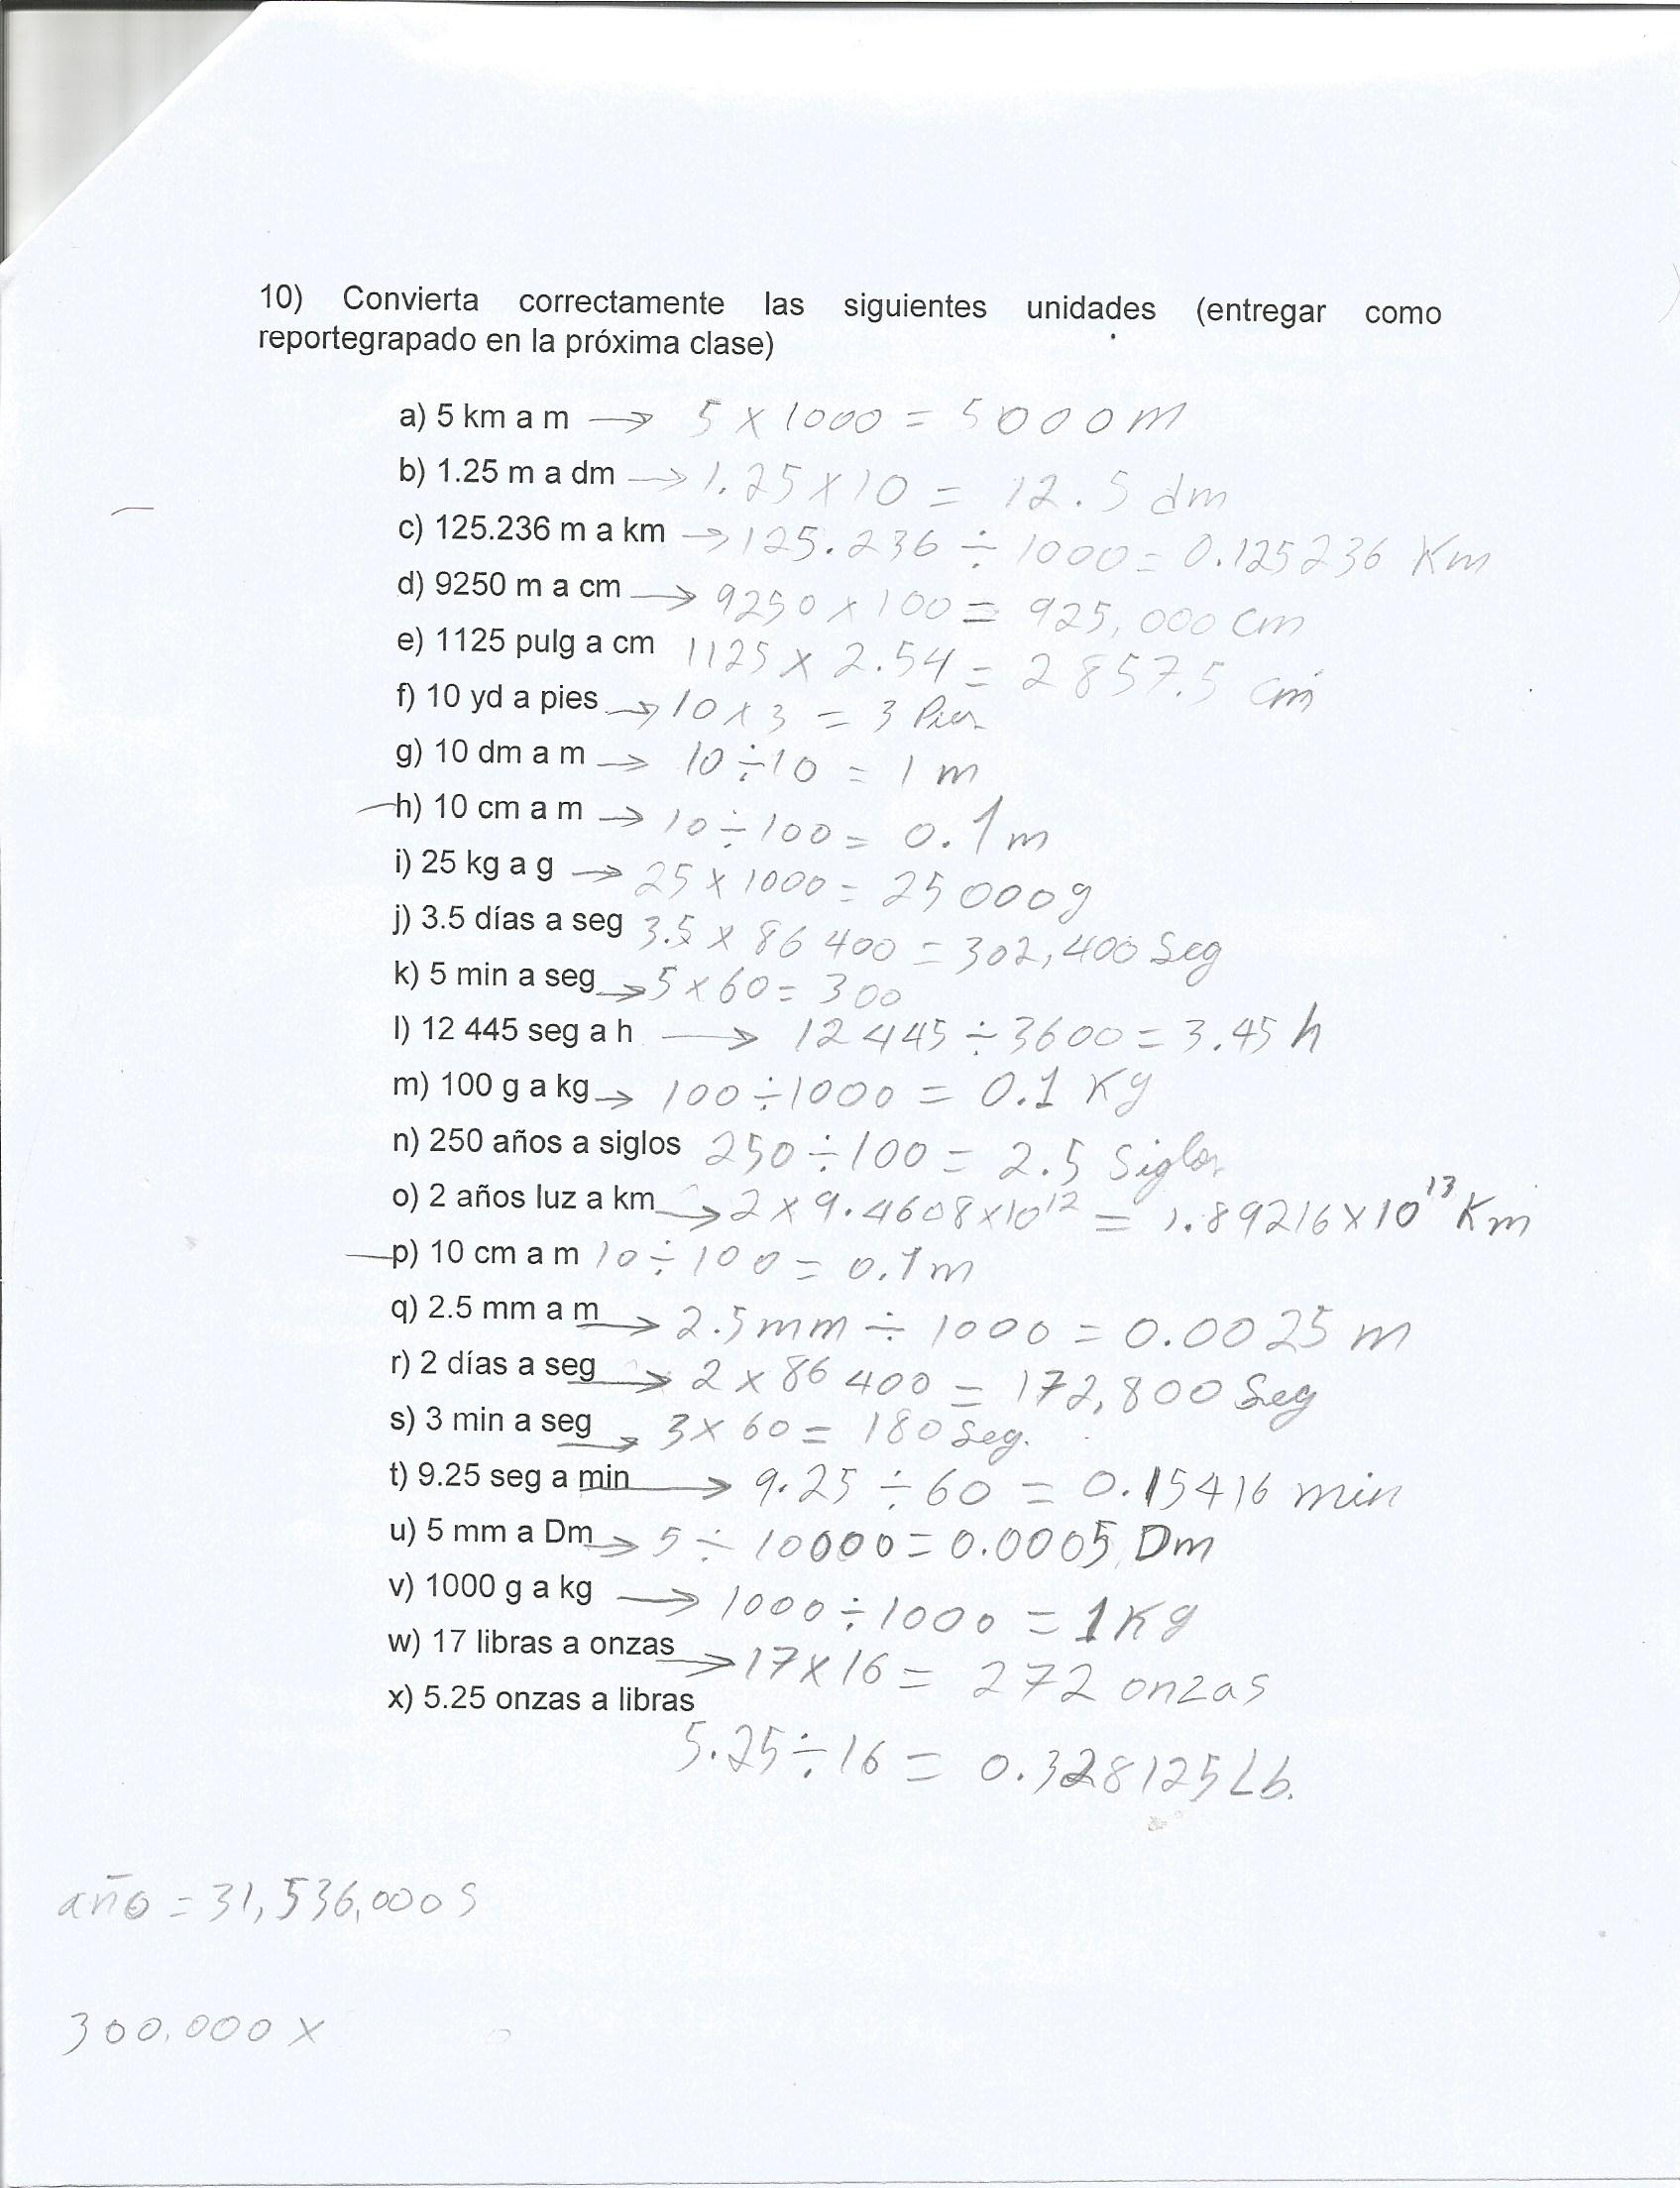 10) Convierta correctamente las siguientes unidades (entregar como
reportegrapado en la próxima clase)
a) 5 km a m → 5 x 1000 = 5000 m
b) 1.25 m a dm → 1.25 x 10 = 12.5 dm
c) 125.236 m a km → 125.236 ÷ 1000 = 0.125236 Km
d) 9250 m a cm → 9250 x 100 = 925,000 cm
e) 1125 pulg a cm 1125 x 2.54 = 2857.5 cm
f) 10 yd a pies → 10 x 3 = 3 Pies
g) 10 dm a m → 10 ÷ 10 = 1 m
h) 10 cm a m → 10 ÷ 100 = 0.1 m
i) 25 kg a g → 25 x 1000 = 25 000 g
j) 3.5 días a seg 3.5 x 86 400 = 302,400 Seg
k) 5 min a seg → 5 x 60 = 300
l) 12 445 seg a h → 12 445 ÷ 3600 = 3.45 h
m) 100 g a kg → 100 ÷ 1000 = 0.1 Kg
n) 250 años a siglos 250 ÷ 100 = 2.5 Siglos
o) 2 años luz a km → 2 x 9.4608x10¹² = 1.89216x10¹³ Km
p) 10 cm a m 10 ÷ 100 = 0.1 m
q) 2.5 mm a m → 2.5 mm ÷ 1000 = 0.0025 m
r) 2 días a seg → 2 x 86 400 = 172,800 Seg
s) 3 min a seg → 3 x 60 = 180 Seg.
t) 9.25 seg a min → 9.25 ÷ 60 = 0.15416 min
u) 5 mm a Dm → 5 ÷ 10000 = 0.0005 Dm
v) 1000 g a kg → 1000 ÷ 1000 = 1 Kg
w) 17 libras a onzas → 17 x 16 = 272 onzas
x) 5.25 onzas a libras
5.25 ÷ 16 = 0.328125 Lb.
año = 31,536,000 s
300.000 x